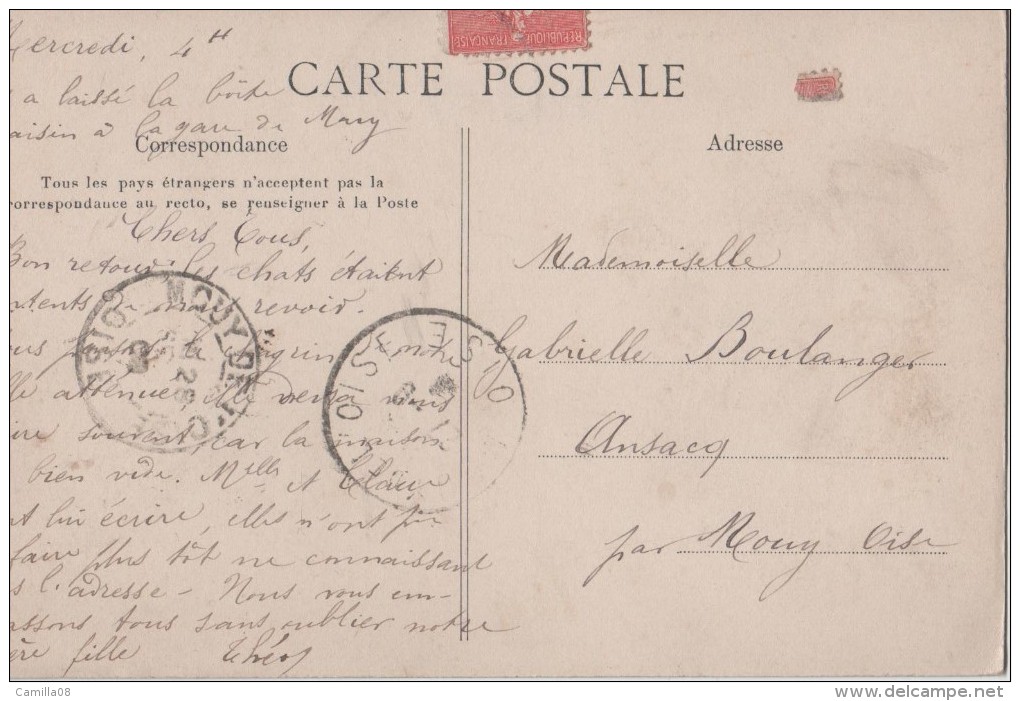 ercredi, 4 H
a laissé la boîte
aisin à la gare de Mouy
RÉPUBLIQUE FRANÇAISE
CARTE POSTALE
Correspondance
Tous les pays étrangers n'acceptent pas la
correspondance au recto, se renseigner à la Poste
Chers Tous,
Bon retour les chats étaient
ntents de nous revoir.
ous le chagrin notre
lle attenue, elle verra vous
ire souvent, car la maison
bien vide. Melles et Claire
t lui écrire, elles n'ont pu
faire plus tôt ne connaissant
s l'adresse - Nous vous em-
assons tous sans oublier notre
ère fille
MOUY
OISE
Adresse
Mademoiselle
Gabrielle Boulanger
Ansacq
par Mouy Oise
Camilla08
www.delcampe.net